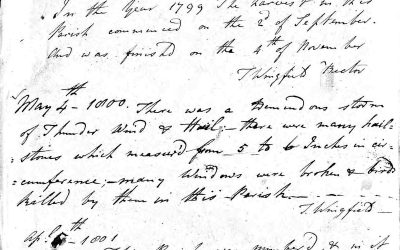 In the Year 1799 The harvest in this
Parish commenced on the 2d of September.
and was finishd on the 4th of November
T Wingfield Rector
May 4th - 1800. There was a Tremendous storm
of Thunder Wind & Hail; - there were many hail-
=stones which measur'd from 5 to 6 Inches in cir-
=cumference; - many Windows were broken & birds
killed by them in this Parish - . - . -
T. Wingfield -
Apl. 5th - 1801.
The & in it